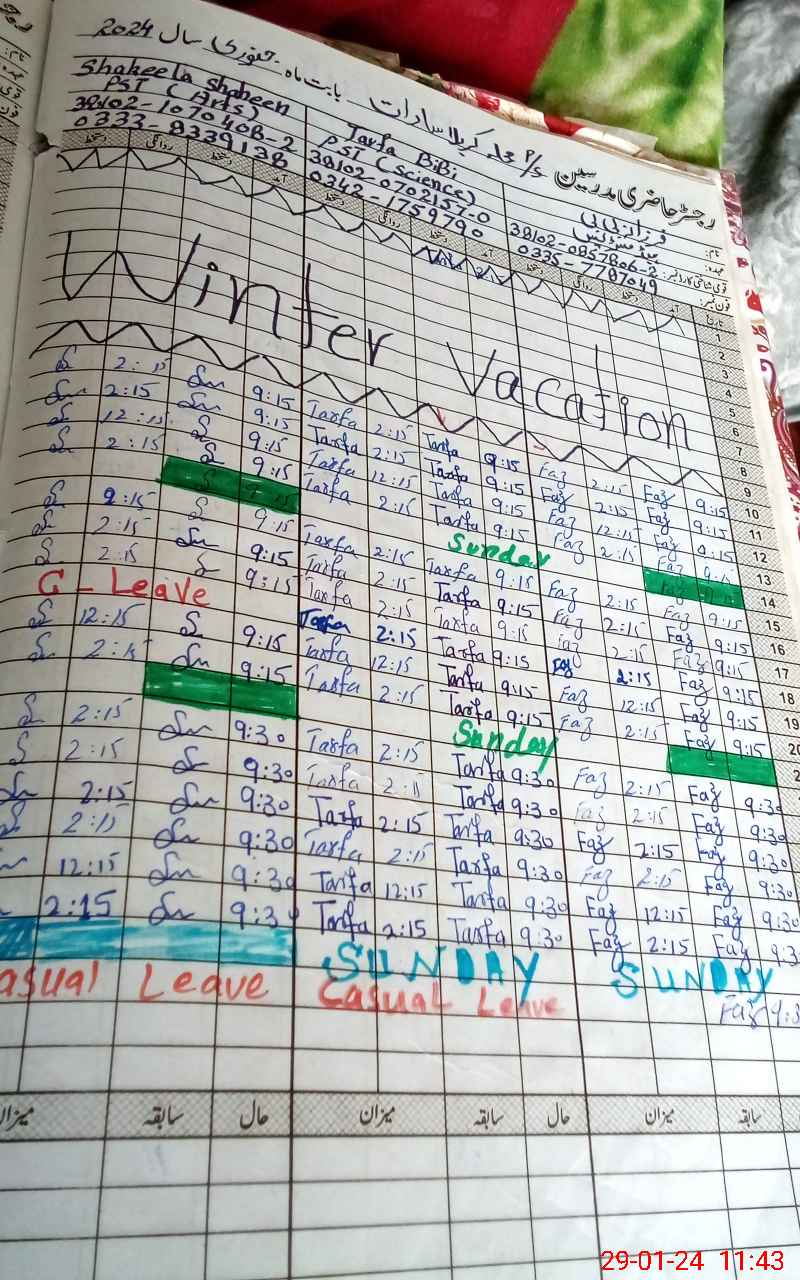 رجسٹر حاضری مدرسین P/S محلہ کربلا سادات بابت ماہ جنوری سال 2024
نام: فرزانہ بی بی
Tarfa BiBi
Shakeela Shaheen
عہدہ: ہیڈمسٹریس
PST (Science)
PST (Arts)
قومی شناختی کارڈ نمبر: 38102-0857806-2
38102-0702157-0
38102-1070408-2
فون نمبر: 0335-7787049
0342-1759790
0333-8339138
تاریخ آمد دستخط روانگی دستخط آمد دستخط روانگی دستخط آمد دستخط روانگی دستخط
1
2
3
4
5
6
7
8
Winter Vacation
9 9:15 Faz 2:15 Faz 9:15 Tarfa 2:15 Tarfa 9:15 2:15
10 9:15 Faz 2:15 Faz 9:15 Tarfa 2:15 Tarfa 9:15 2:15
11 9:15 Faz 12:15 Faz 9:15 Tarfa 12:15 Tarfa 9:15 12:15
12 9:15 Faz 2:15 Faz 9:15 Tarfa 2:15 Tarfa 9:15 2:15
13
14 Sunday
15 9:15 Faz 2:15 Faz 9:15 Tarfa 2:15 Tarfa 9:15 2:15
16 9:15 Faz 2:15 Faz 9:15 Tarfa 2:15 Tarfa 9:15 2:15
17 9:15 Faz 2:15 Faz 9:15 Tarfa 2:15 Tarfa 9:15 2:15
18 9:15 Faz 2:15 Faz 9:15 Tarfa 2:15 Tarfa C-Leave
19 9:15 Faz 12:15 Faz 9:15 Tarfa 12:15 Tarfa 9:15 12:15
20 9:15 Faz 2:15 Faz 9:15 Tarfa 2:15 Tarfa 9:15 2:15
Sunday
9:30 Faz 2:15 Faz 9:30 Tarfa 2:15 Tarfa 9:30 2:15
9:30 Faz 2:15 Faz 9:30 Tarfa Tarfa 9:30 2:15
9:30 Faz 2:15 Faz 9:30 Tarfa 2:15 Tarfa 9:30 2:15
9:30 Faz 2:15 Faz 9:30 Tarfa 2:15 Tarfa 9:30 2:15
9:30 Faz 12:15 Faz 9:30 Tarfa 12:15 Tarfa 9:30 12:15
Faz 2:15 Faz 9:30 Tarfa 2:15 Tarfa 9:30 2:15
SUNDAY SUNDAY
Faz Casual Leave Leave
سابقہ میزان حال سابقہ میزان حال سابقہ
29-01-24 11:43